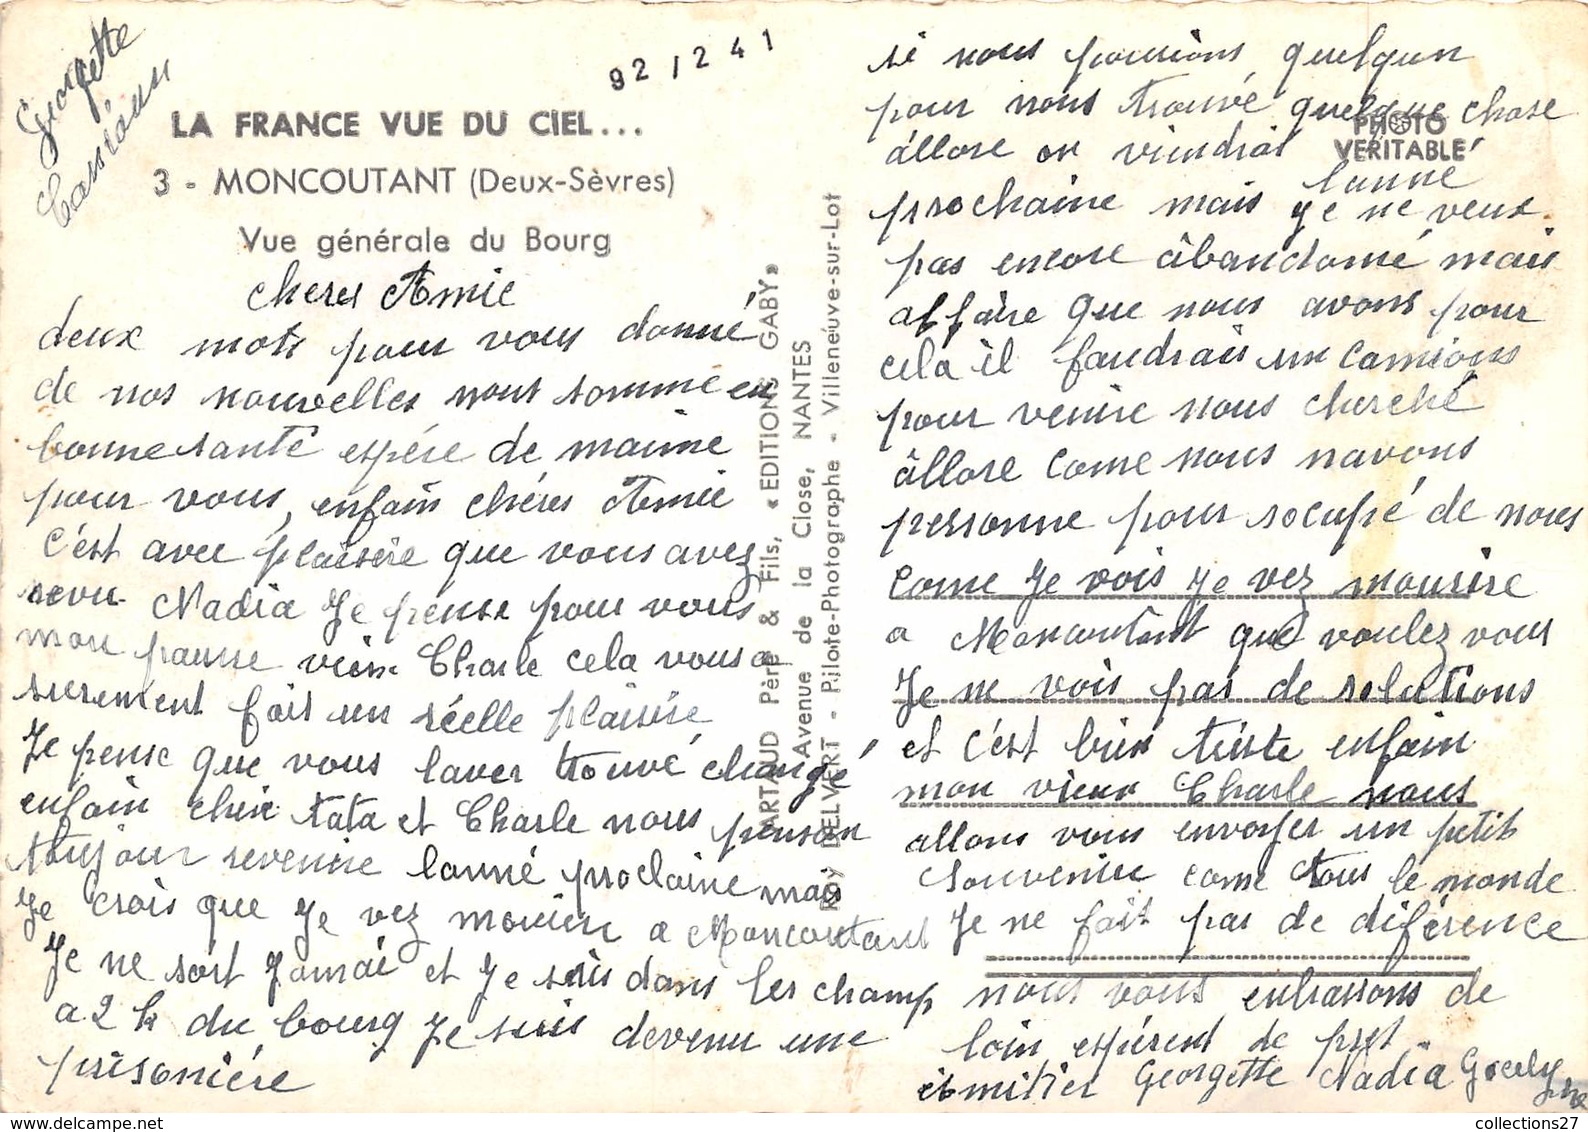 Georgette
Cassiaux
92 / 2 4 1
LA FRANCE VUE DU CIEL...
3 - MONCOUTANT (Deux-Sèvres)
Vue générale du Bourg
PHOTO
VERITABLE
ARTAUD Père & Fils, « EDITIONS GABY »
Avenue de la Close, NANTES
RAY DELVERT - Pilote-Photographe - Villeneuve-sur-Lot
cheres Amie
deux mots pour vous donné
de nos nouvelles nous somme en
bonne santé espére de maime
pour vous, enfain chéres Amie
C'est avec plaisire que vous avez
revu Nadia Je pense pour vous
mon pauvre vieux Charle cela vous a
surement fait un réelle plaisire
Je pense que vous laver trouvé changé
enfain chér tata et Charle nous penson
toujour revenire lanné proclaine mais
Je crois que Je vez mourir a Moncoutant
Je ne sort Jamai et Je suis dans les champ
a 2 k du bourg Je suis devenu une
prisonière
si nous pouvions quelqun
pour nous trouvé quelque chose
âllore on viendrai lanné
prochaine mais je ne veux
pas encore âbandonné mais
affaire que nous avons pour
cela il faudrais un camions
pour venire nous cherché
âllore come nous navons
personne pour socupé de nous
come Je vois Je vez mourire
a Moncoutant que voulez vous
Je ne vois pas de solutions
et c'est bien triste enfain
mon vieux Charle nous
allons vous envoyer un petit
souvenire come tous le monde
Je ne fait pas de diférence
nous vous enbrassons de
loin espérent de pret
Georgette Nadia